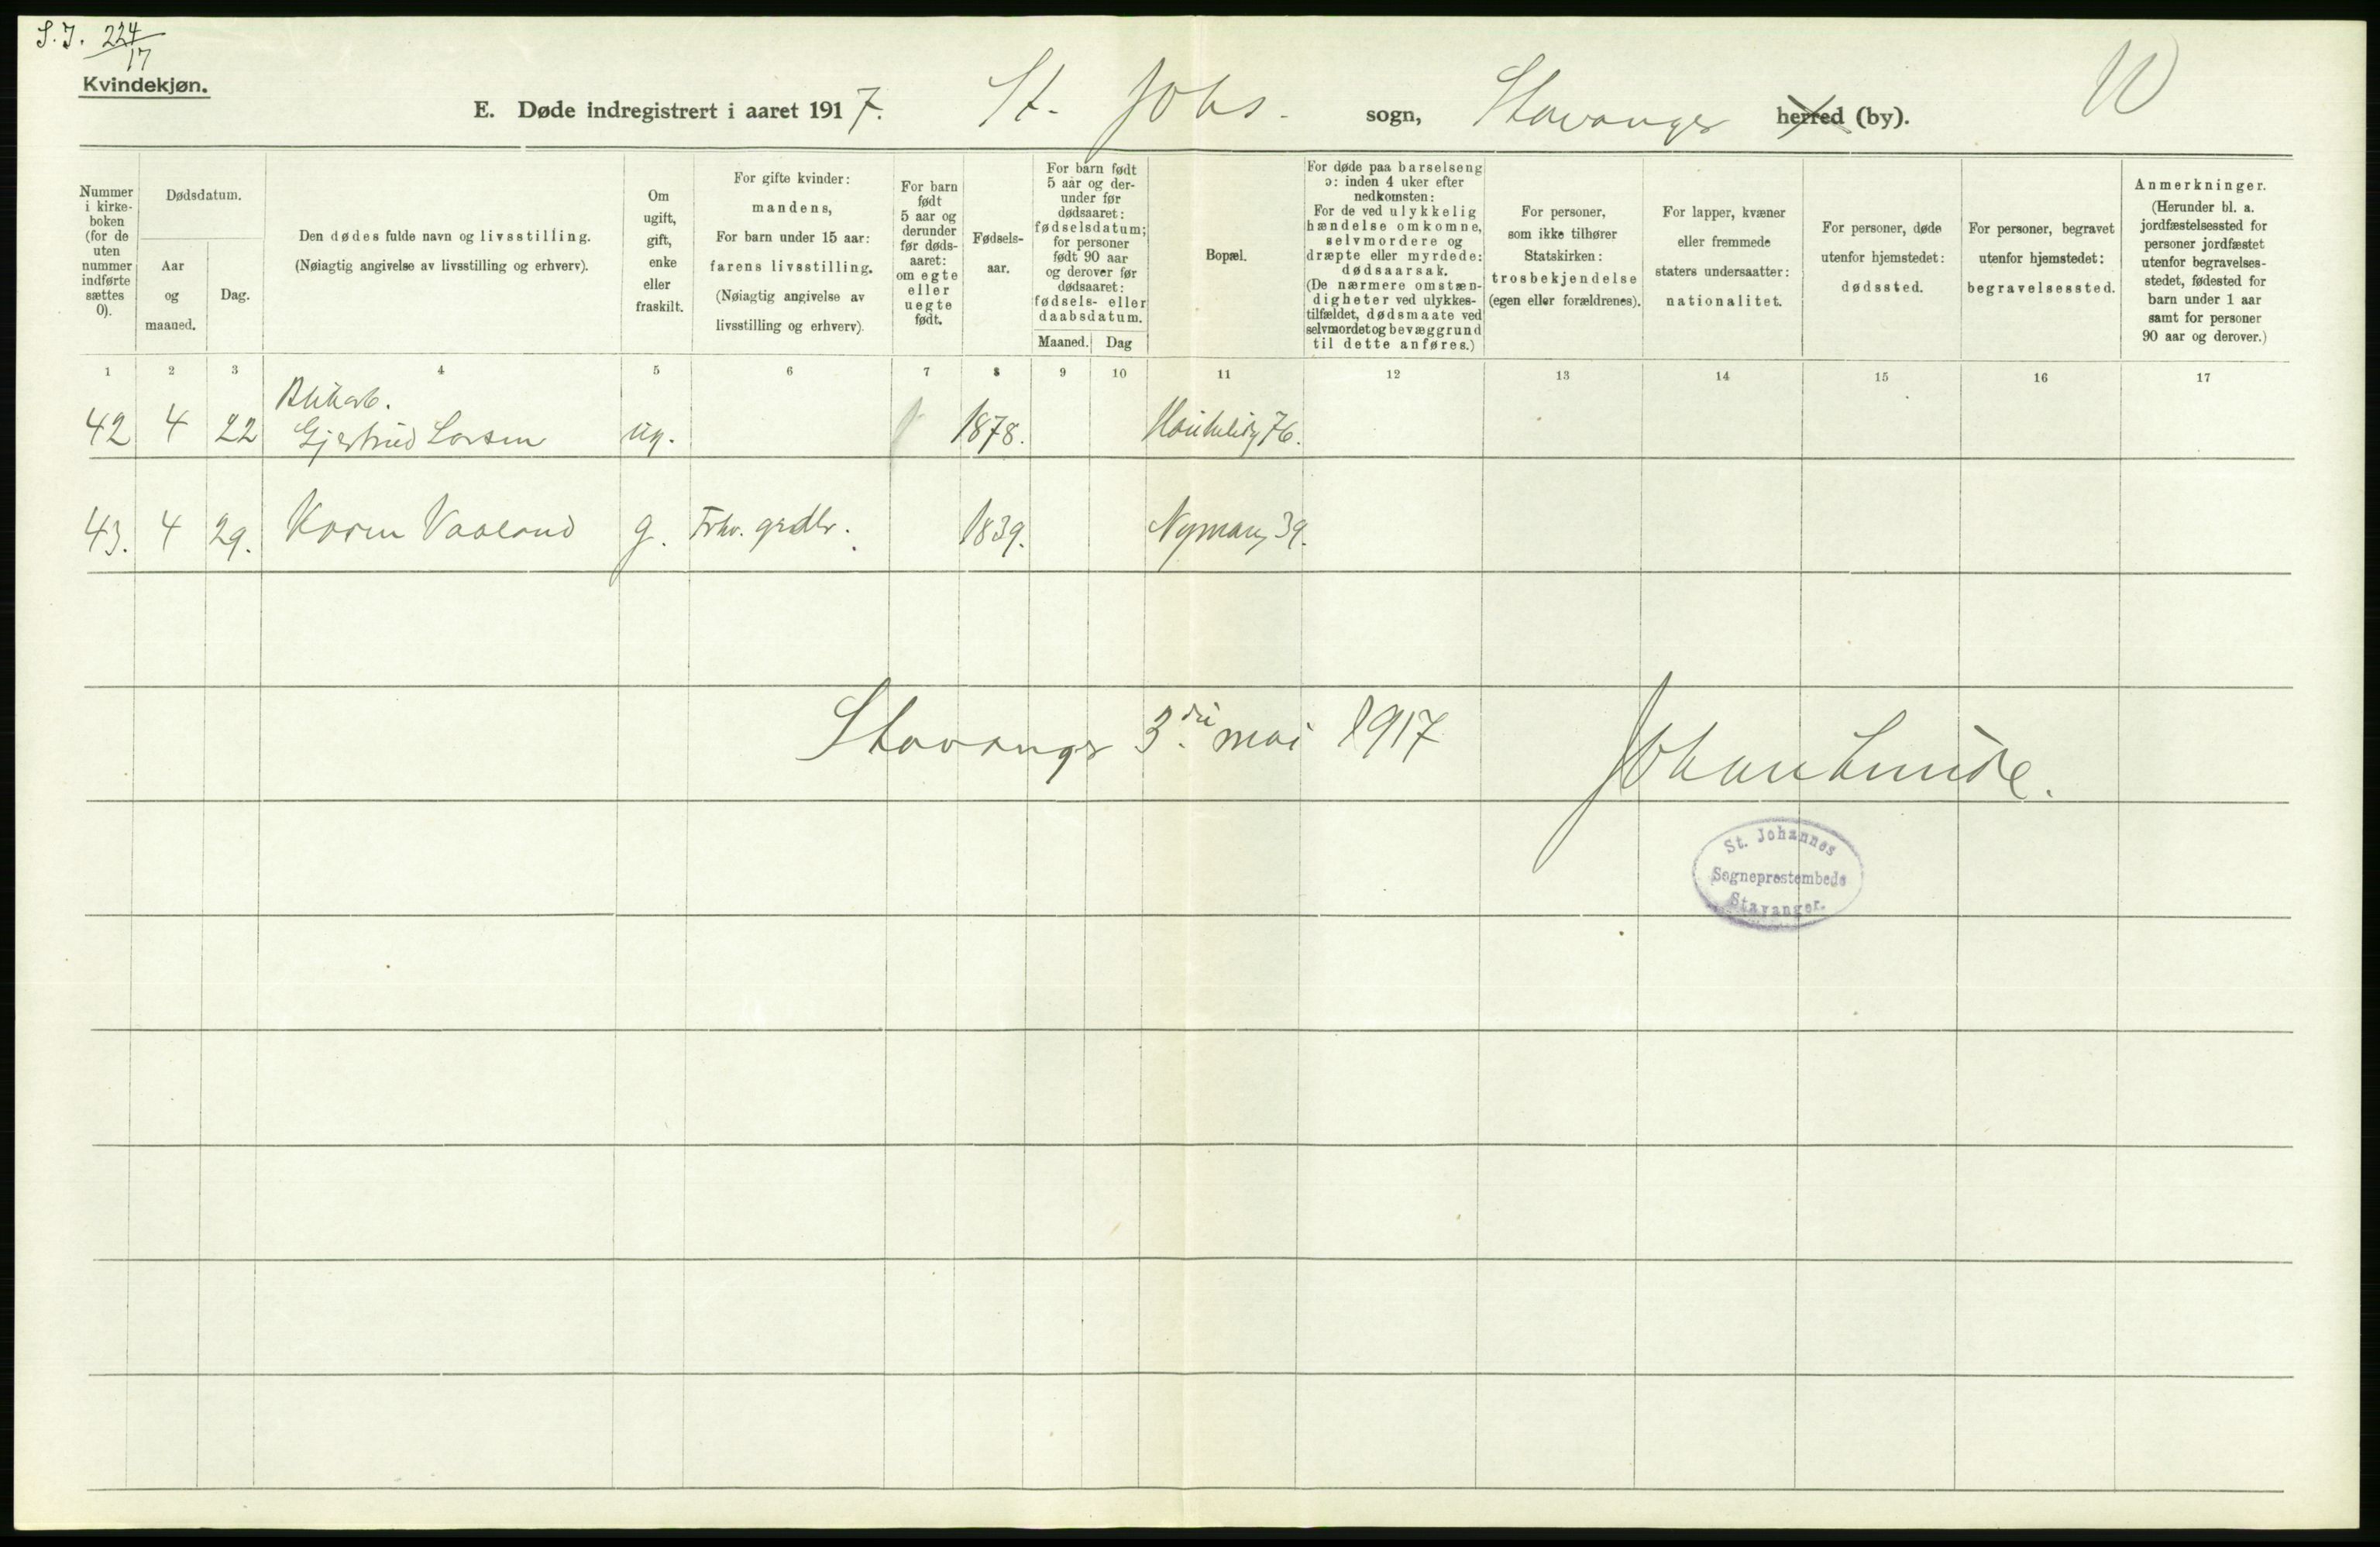 S. J. 224
17
Kvindekjøn.
E. Døde indregistrert i aaret 1917. St. Johs. sogn, Stavanger herred (by).
Nummer i kirke-boken (for de uten nummer indførte sættes 0).
Dødsdatum.
Aar og maaned.
Dag.
Den dødes fulde navn og livsstilling.
(Nøiagtig angivelse av livsstilling og erhverv).
Om ugift, gift, enke eller fraskilt.
For gifte kvinder:
mandens,
For barn under 15 aar:
farens livsstilling.
(Nøiagtig angivelse av
livsstilling og erhverv).
For barn født 5 aar og derunder før døds-aaret: om egte eller uegte født.
Fødsels-aar.
For barn født 5 aar og der-under før dødsaaret: fødselsdatum; for personer født 90 aar og derover før dødsaaret: fødsels- eller daabsdatum.
Maaned. Dag
Bopæl.
For døde paa barselseng
ɔ: inden 4 uker efter
nedkomsten:
For de ved ulykkelig
hændelse omkomne,
selvmordere og
dræpte eller myrdede:
dødsaarsak.
(De nærmere omstæn-
digheter ved ulykkes-
tilfældet, dødsmaate ved
selvmordet og bevæggrund
til dette anføres.)
For personer,
som ikke tilhører
Statskirken:
trosbekjendelse
(egen eller forældrenes).
For lapper, kvæner
eller fremmede
staters undersaatter:
nationalitet.
For personer, døde
utenfor hjemstedet:
dødssted.
For personer, begravet
utenfor hjemstedet:
begravelsessted.
Anmerkninger.
(Herunder bl. a.
jordfæstelsessted for
personer jordfæstet
utenfor begravelses-
stedet, fødested for
barn under 1 aar
samt for personer
90 aar og derover.)
1 2 3 4 5 6 7 8 9 10 11 12 13 14 15 16 17
42 4 22 Gjertrud Larsen ug. 1878. 76.
43. 4 29. Karen Vaaland g. Frhv. grdbr. 1839. 39.
Stavanger 3. mai 1917
Johan Lunde.
St. Johannes
Sogneprestembede
Stavanger.